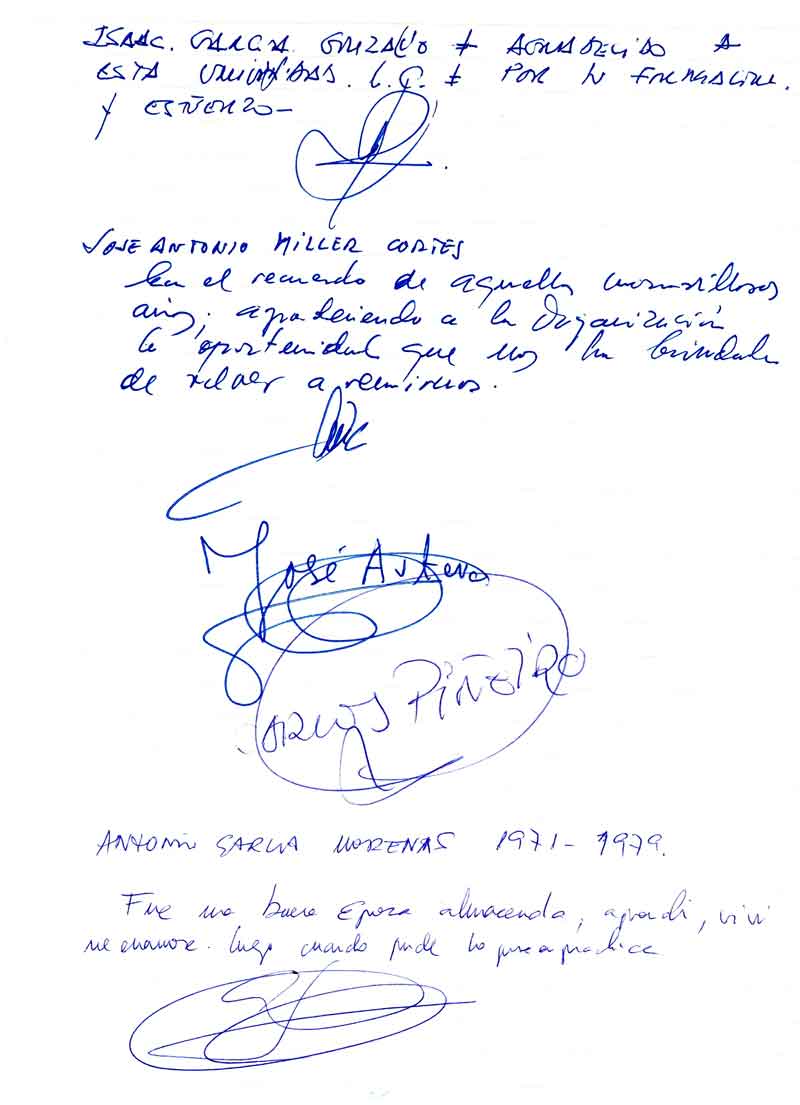 ISAAC. GARCIA. GONZALO + AGRADECIDO A
ESTA POR LA FORMACION.
Y ESFUERZO-
JOSE ANTONIO MILLER CORTES
En el recuerdo de aquellos maravillosos
años, agradeciendo a la Organización
la oportunidad que nos ha brindado
de volver a reunirnos.
José
CARLOS PIÑEIRO
ANTONIO GARCIA MORENAS 1971-1979.
Fue una buena epoca almacenda, aprendi, vivi
me enamore. luego cuando pude lo puse a practica